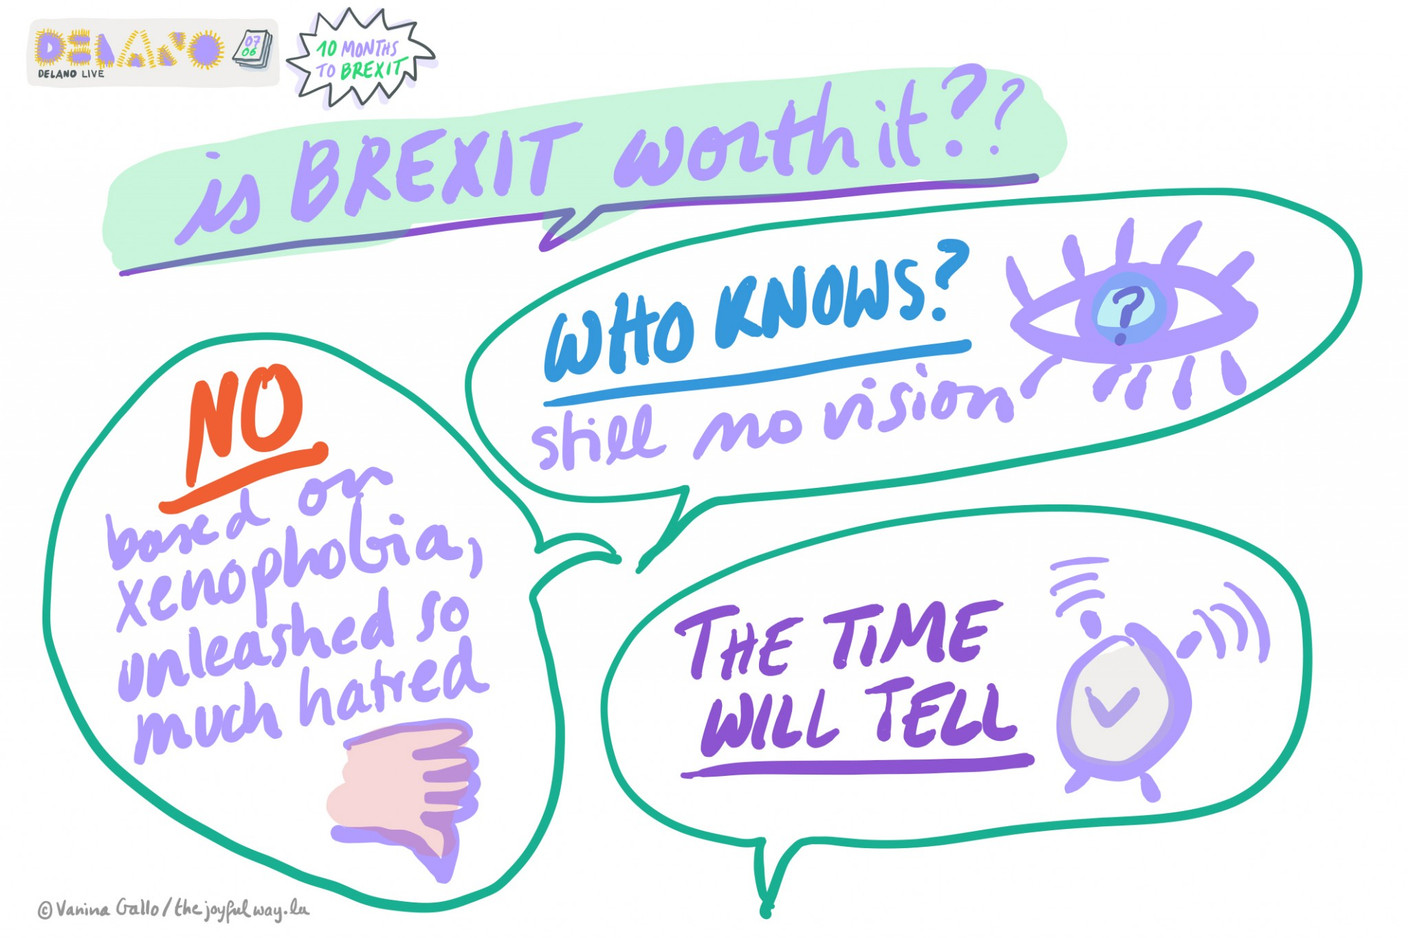 DELANO
DELANO LIVE
07
06
10 MONTHS
TO BREXIT
is BREXIT worth it??
WHO KNOWS?
still no vision
?
NO
based on
xenophobia,
unleashed so
much hatred
THE TIME
WILL TELL
© Vanina Gallo / thejoyfulway.lu